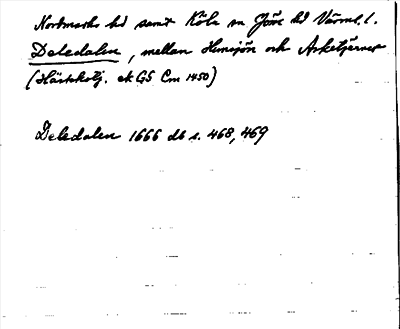 Nordmarks hd samt Köla sn Jösse hd Värml. l.
Deledalen, mellan Hurrsjön och Arketjärnet
(Härskotj. ek GS Cm 1450)
Deledalen 1666 db s. 468, 469